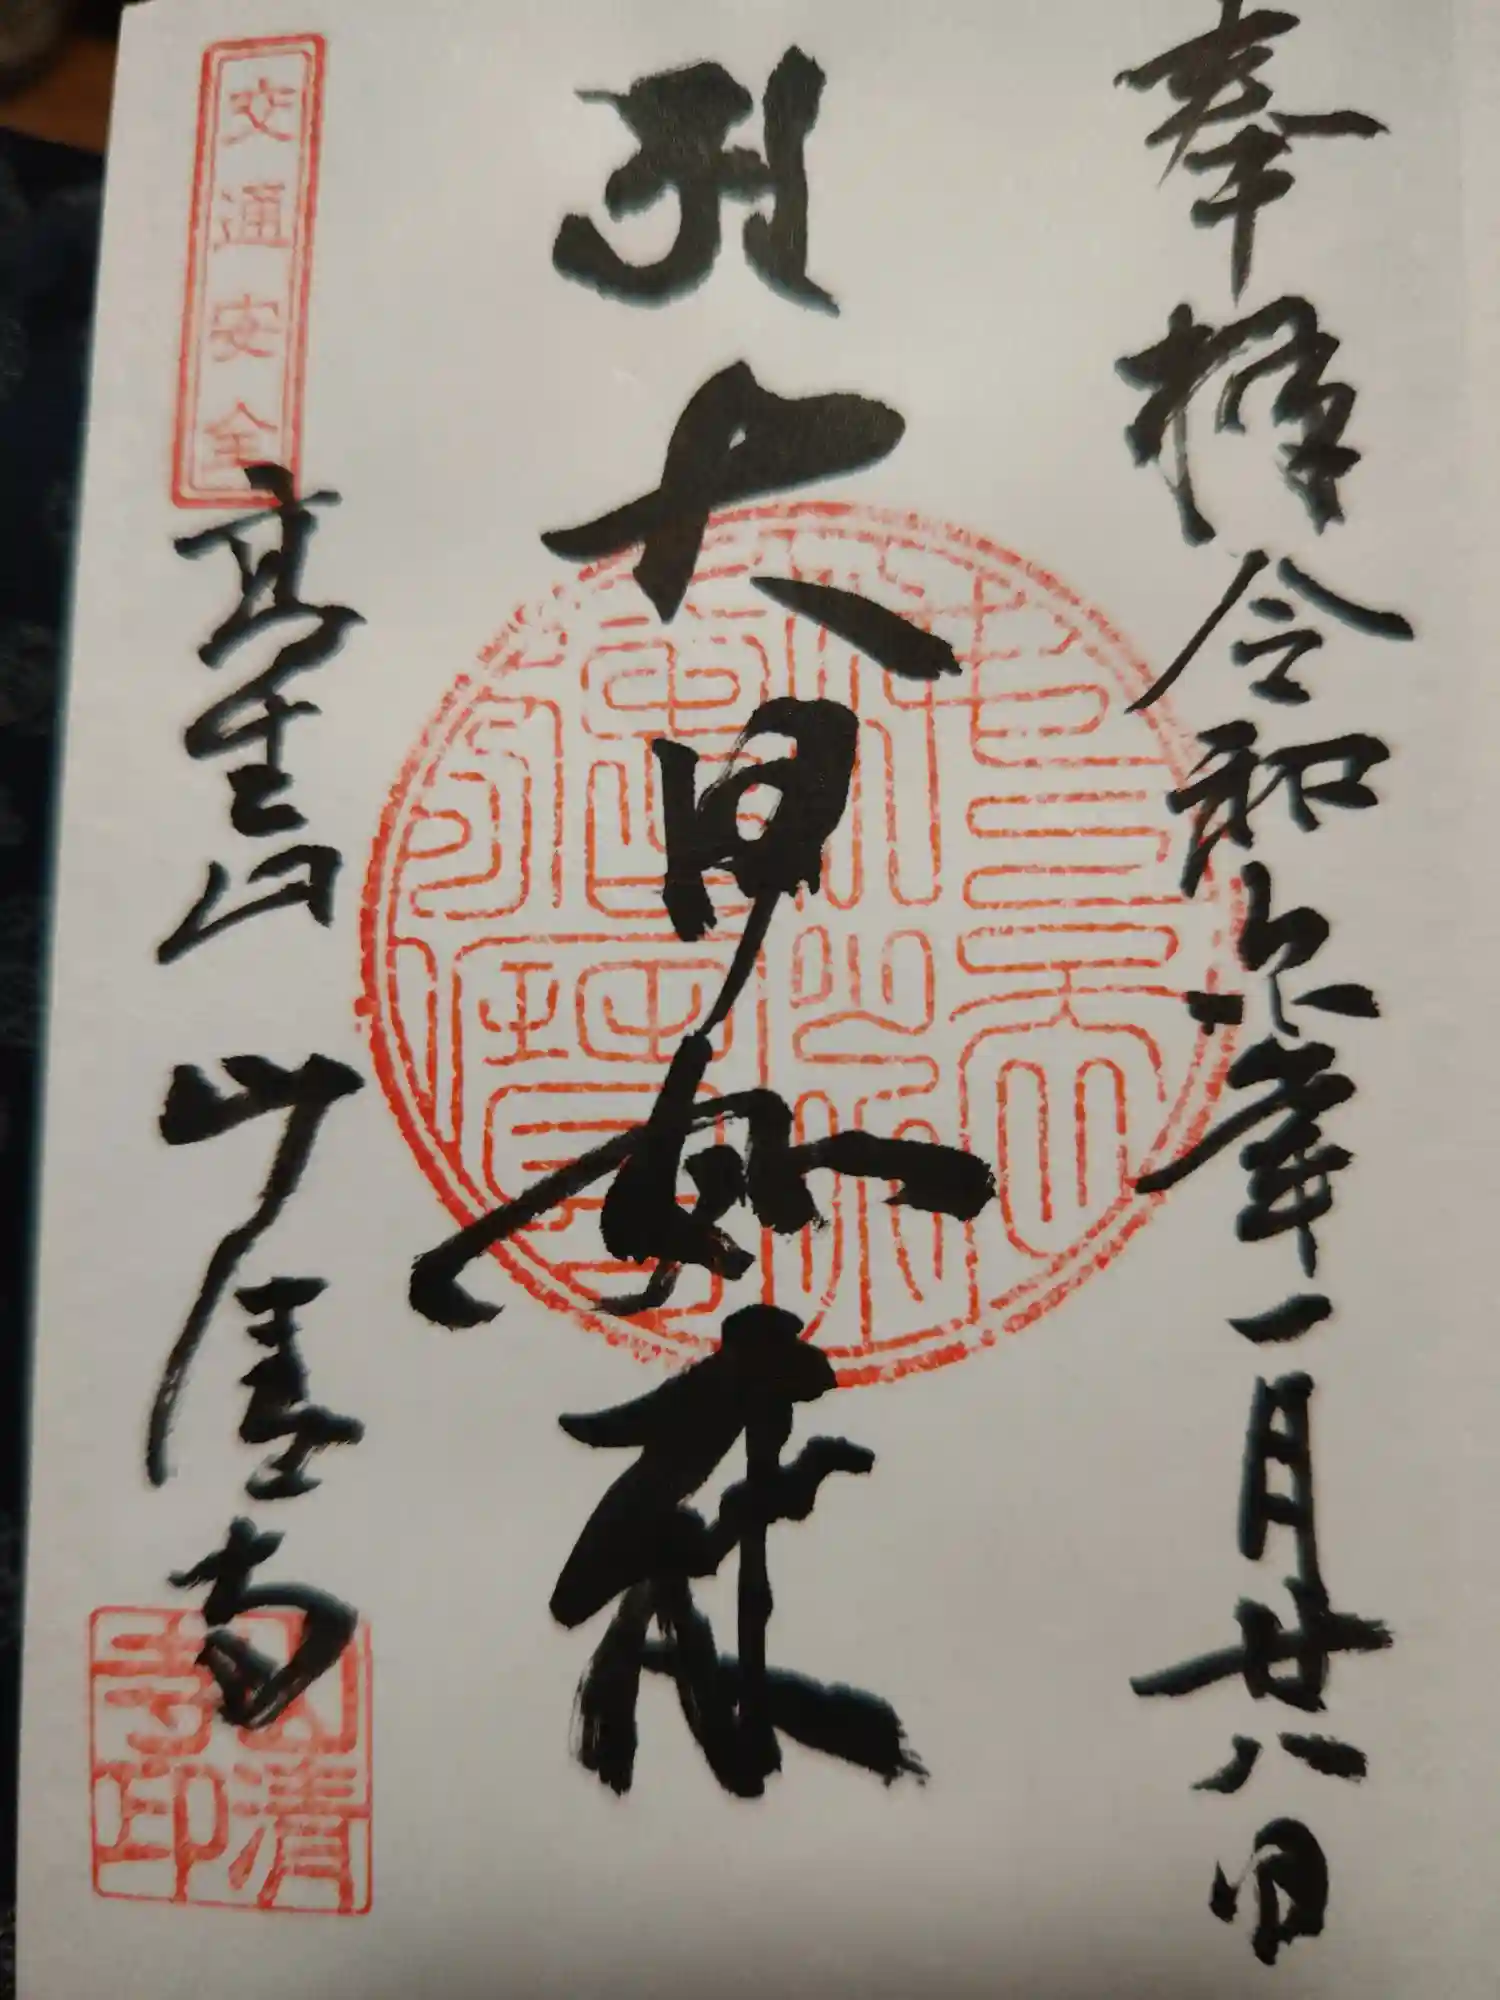 奉拝 令和六年一月廿八日
大日如来
交通安全
高生山 山清寺
山清寺印